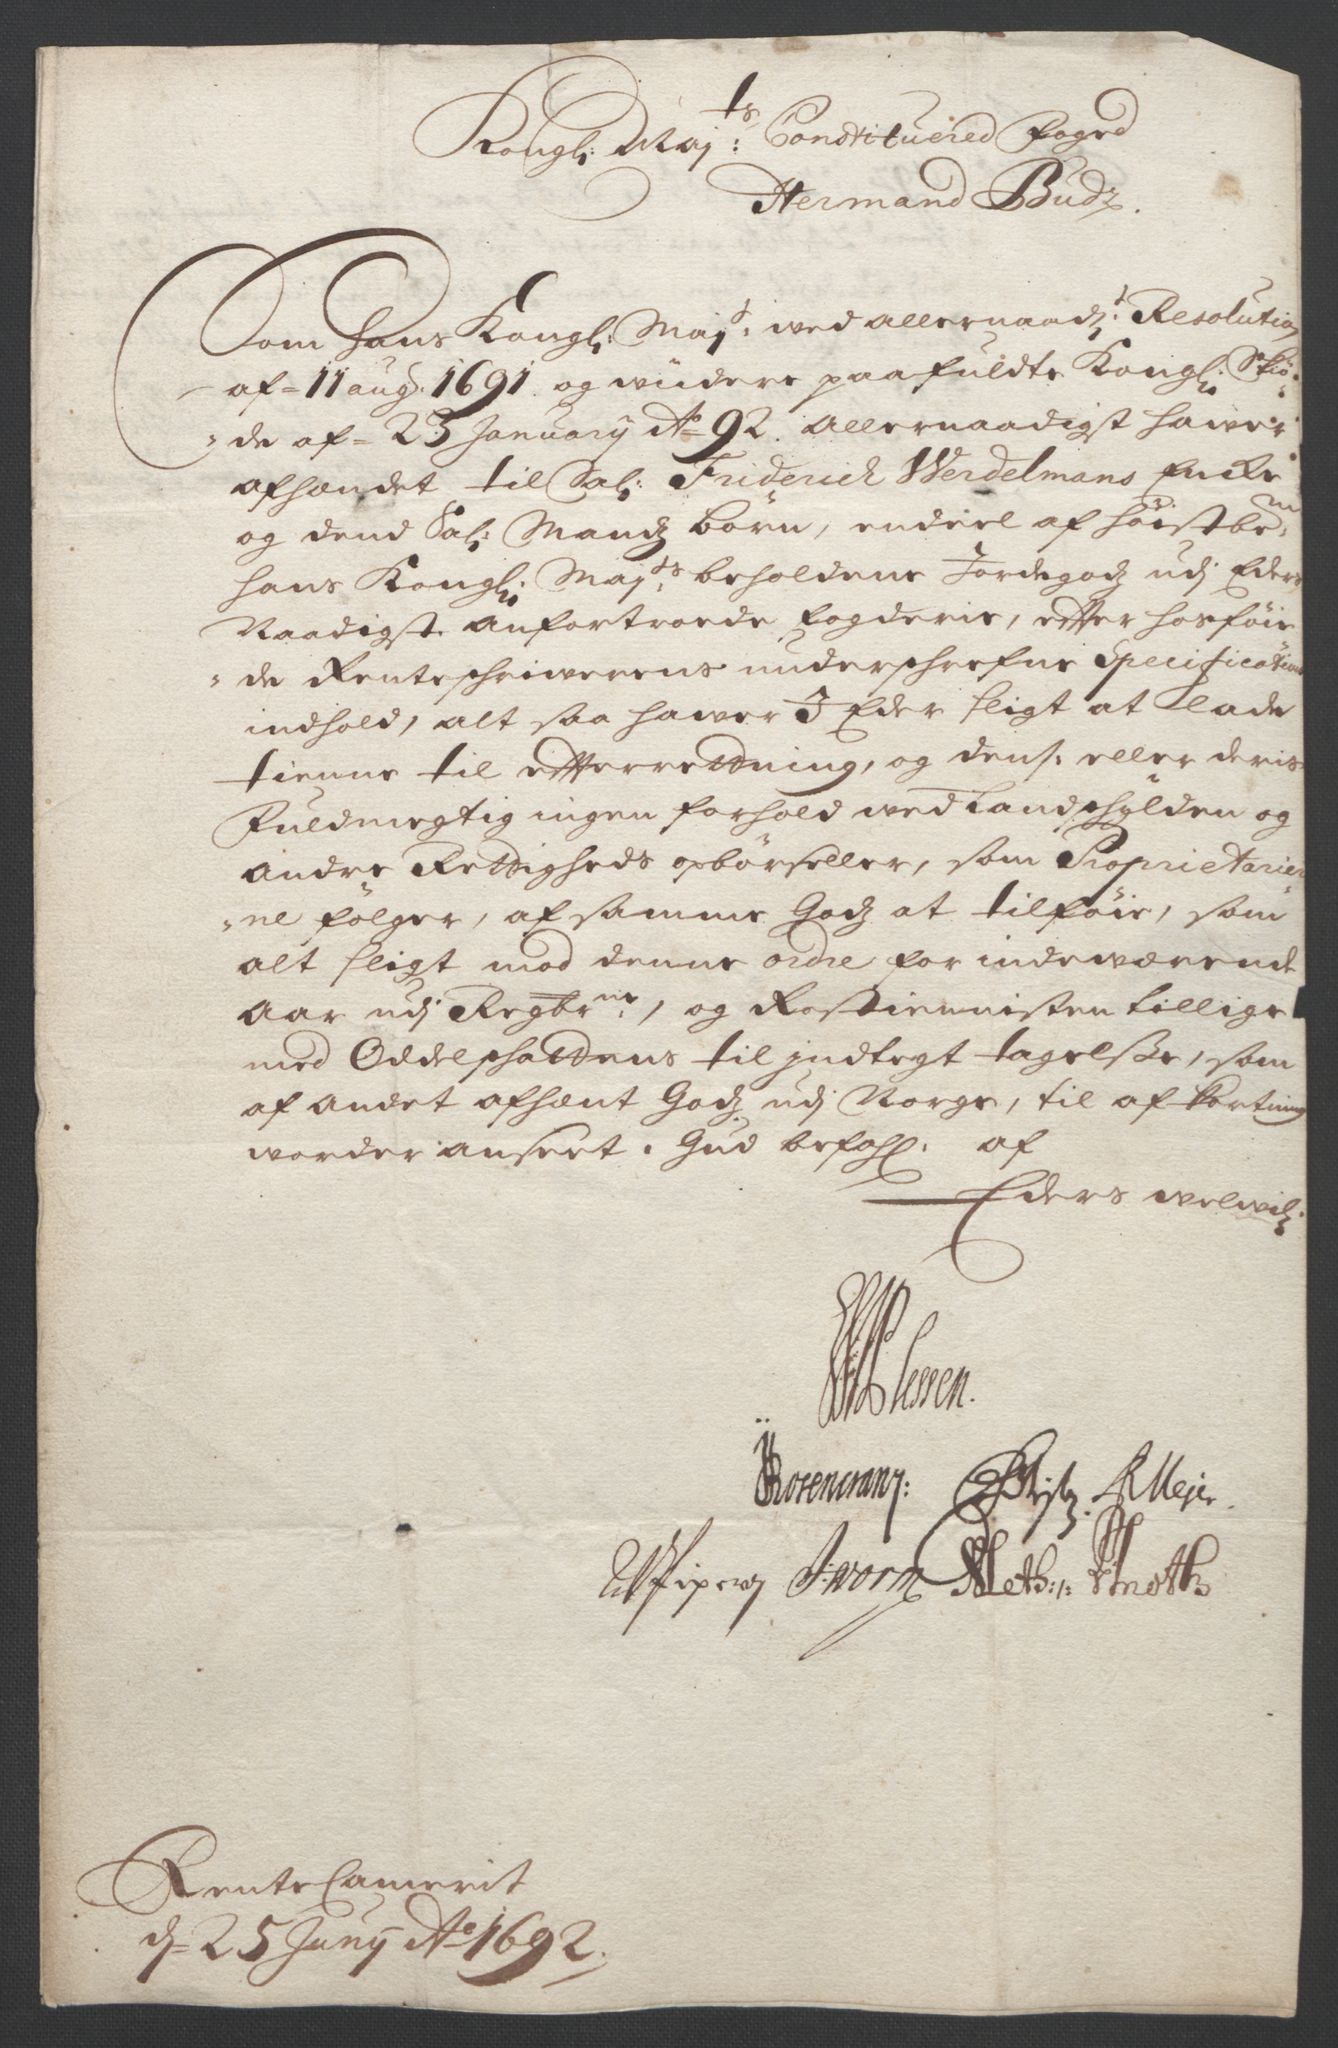 Kongl: Maj:ts Constituered Foged
Hermand Budz.
Som hans Kongl: Maj:t wed allernaadj:t Resolution
af 11 aug: 1691 og widere paafuldte Kongl: Skiö-
de af 23 January Ao 92. allernaadigst hawer
afhændet til Sal: Friderich Werdelmans Encke
og dend Sal: Mandz börn, endeel af höistbe:m
hans Kongl: Maj:ts beholdene Jordegodz udj Eders
Naadigst anfortroede Fogderie, effter hosföie-
de Renteschriwerens underschrefne Specification
indhold, alt saa hawer I Eder sligt at lade
tienne til efterrettning, og dens: eller deris
Fuldmegtig ingen forhold wed Landschylden og
andre Rettigheds opbörseller, som Proprietarier-
ne fölger, af samme Godz at tilföie, som
alt sligt med denne ordre for indewærende
Aar udj Regb:ne, og Rostienisten tillige
med Oddelschattens til jndtegt tagelsse, som
af andet afhænt Godz udj Norge, til afkortning
worder anseet. Gud befahl. af
Eders welwill:
Plessen.
Rosencrantz: Meyer
J: Worm Meth:
Rente Cammerit
d 25 Junij Ao 1692.